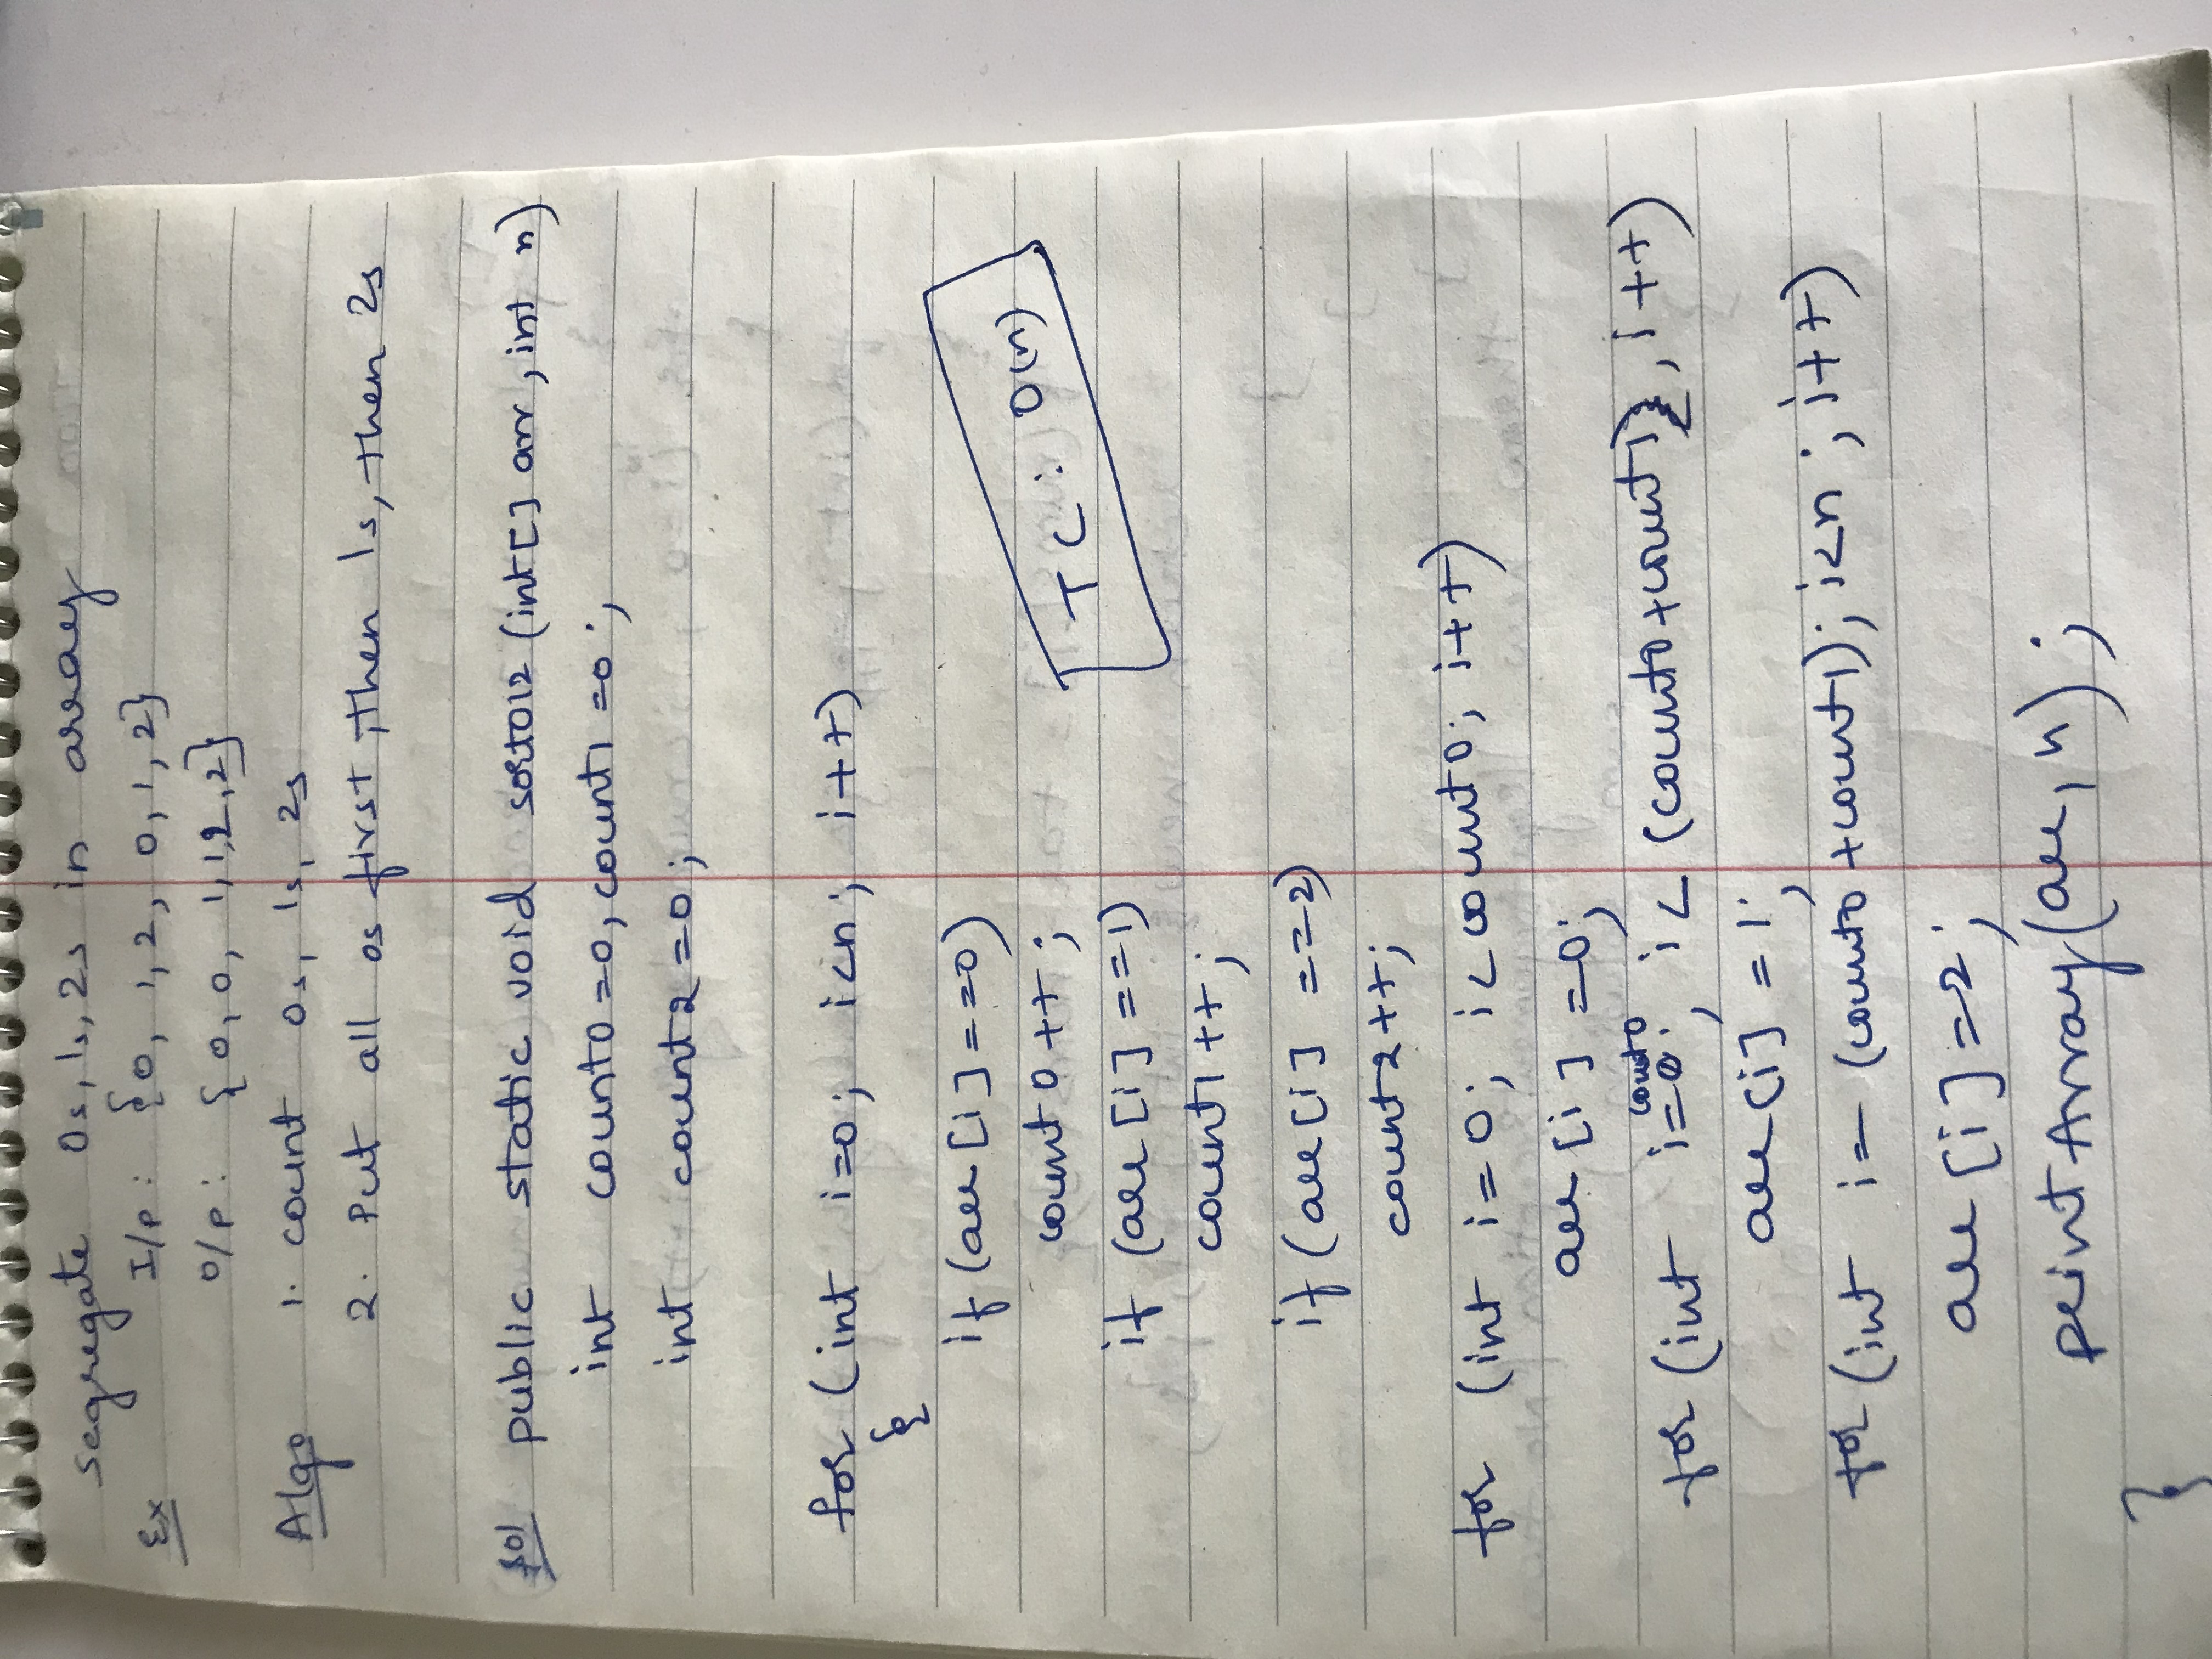 segregate 0s, 1s, 2s in array
Ex I/p : {0, 1, 2, 0, 1, 2}
O/p : {0, 0, 1, 1, 2, 2}
Algo 1. count 0s, 1s, 2s
2. Put all 0s first, then 1s, then 2s
Sol public static void sort012 (int[] arr, int n)
int count0=0, count1=0;
int count2=0;
for (int i=0; i<n; i++)
{
if (arr[i]==0)
count0++;
TC : O(n)
if (arr[i]==1)
count1++;
if (arr[i]==2)
count2++;
for (int i=0; i<count0; i++)
arr[i]=0;
for (int i=count0; i<(count0+count1), i++)
arr[i]=1;
for (int i=(count0+count1); i<n; i++)
arr[i]=2;
printArray(arr, n);
}